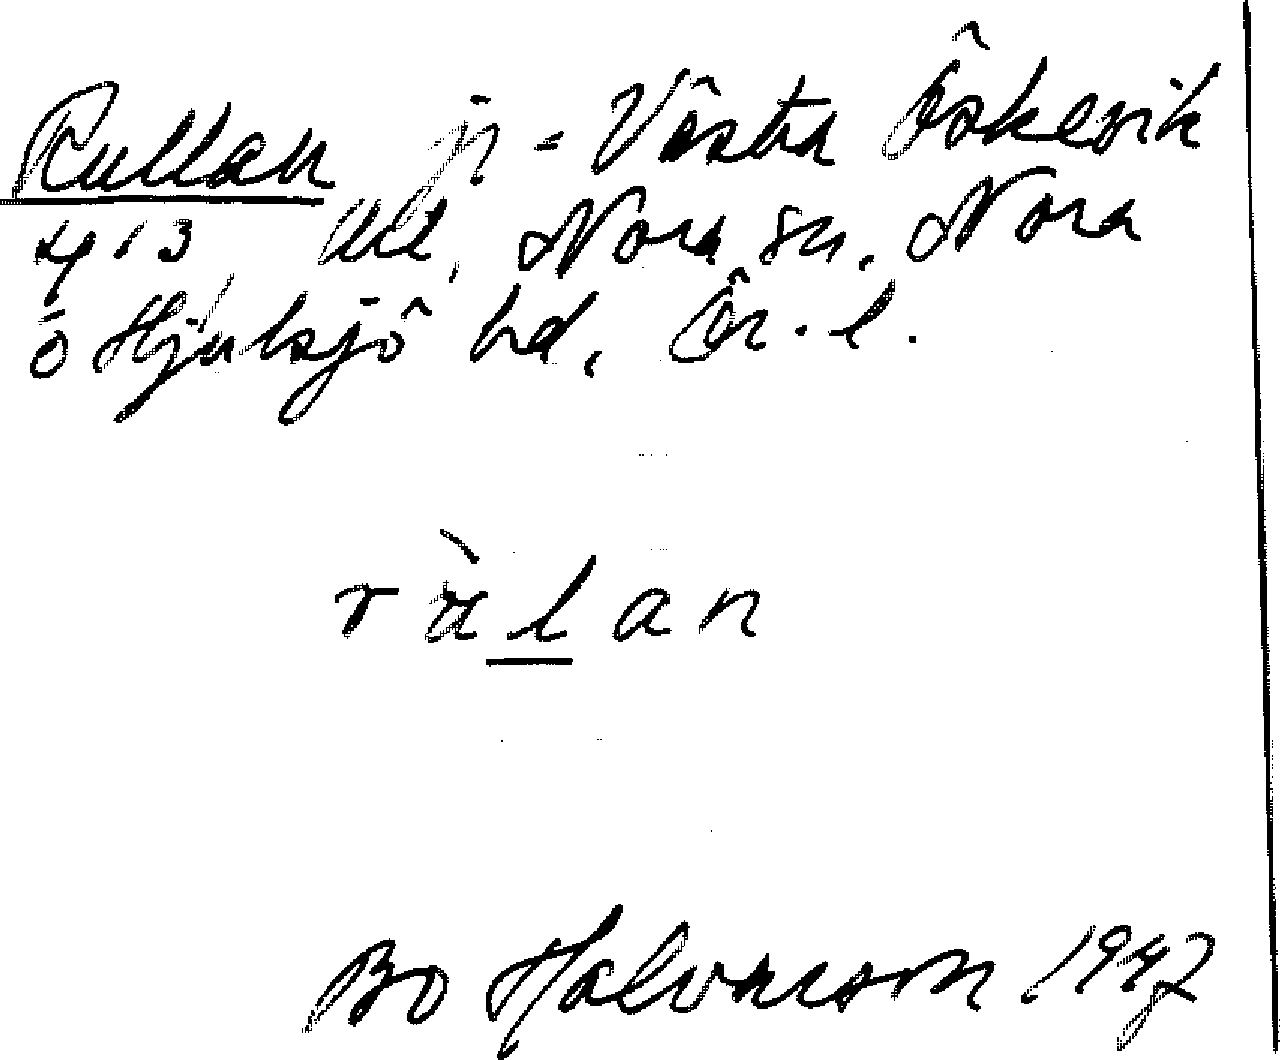 Rullan jr = Västra Öskevik
4 13 ut, Nora sn. Nora
ō Hjulsjö hd, Ör. l.
r ù l a n
Bo Halvarson 1947